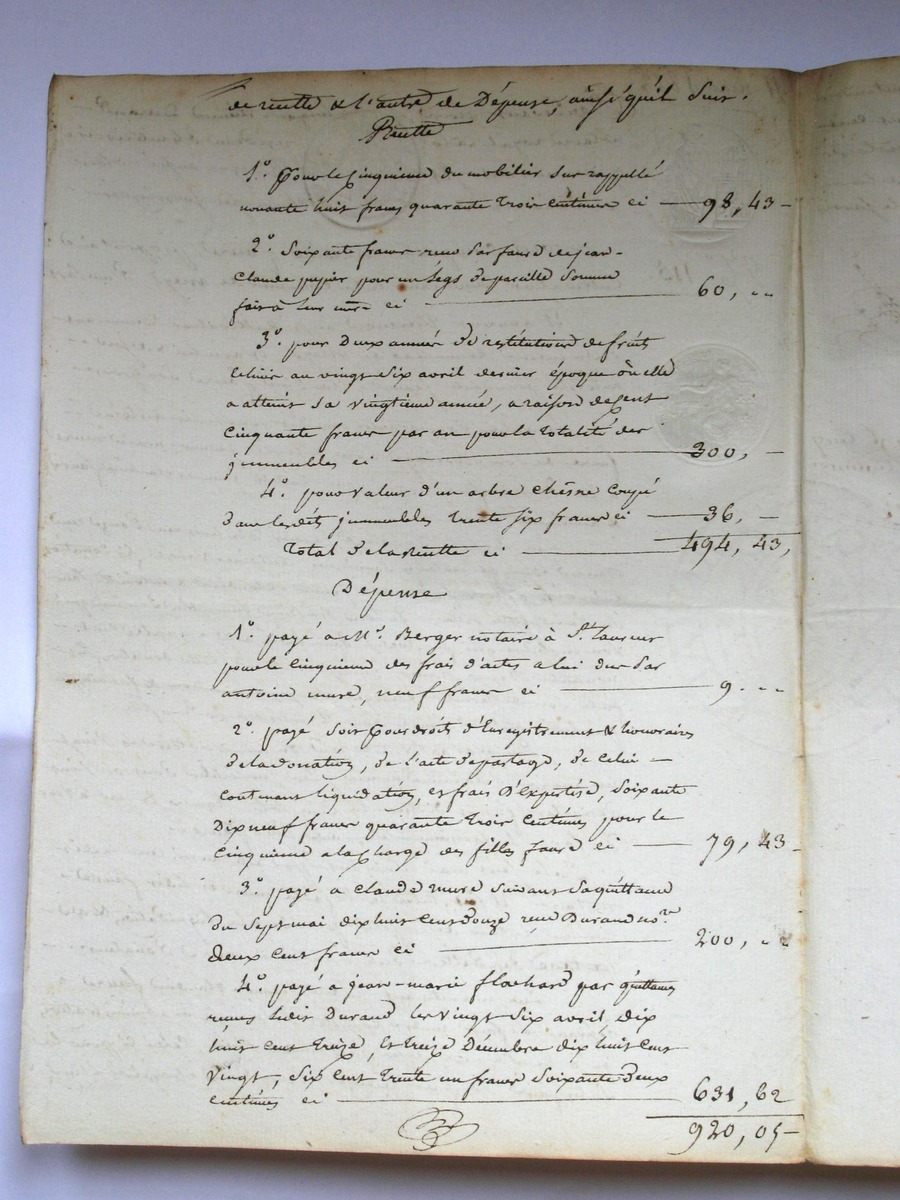 de recette & l'autre de Dépense, ainsi qu'il Suit.
Recette
1º. pour le Cinquieme du mobilier Sus rappellé
nonante huit francs quarante trois Centimes ci — 98, 43 -
2º. Soixante francs recu par faure de jean-
Claude pupier pour un Legs de pareille Somme
fait à leur mere ci — 60, „ „
3º. pour Deux années de restitutions de fruits
échus au vingt Six avril dernier époque où elle
a atteint Sa vingtieme année, a raison de Cent
Cinquante francs par an pour la totalité des
jmmeubles ci — 300, -
4º. pour valeur d'un arbre Chêsne Coupé
dans lesdits jmmeubles trente Six francs ci — 36, -
Total de la Recette ci — 494, 43,
Dépense
1º. payé a Mr. Berger notaire à St. Laurent
pour le Cinquieme des frais d'actes a lui dus par
antoine mure, neuf francs ci — 9 . „ „
2º. payé Soit pour droits d'Enregistrement & honoraires
de la donation, de l'acte de partage, de Celui -
Contenant liquidation, et frais D'expertise, Soixante
Dix neuf francs quarante trois Centimes pour le
Cinquieme a la Charge des filles faure ci — 79, 43 -
3º. payé a Claude mure Suivant Sa quittance
du Sept mai dix huit cent douze recue Durand nore
deux Cent francs ci — 200, „ „
4º. payé a jean-marie flachard par quittances
recues ledit Durand les vingt Six avril dix
huit cent treize, Et treize Décembre dix huit Cent
vingt, Six Cent trente un francs Soixante deux
centimes ci — 631, 62
920, 05 -